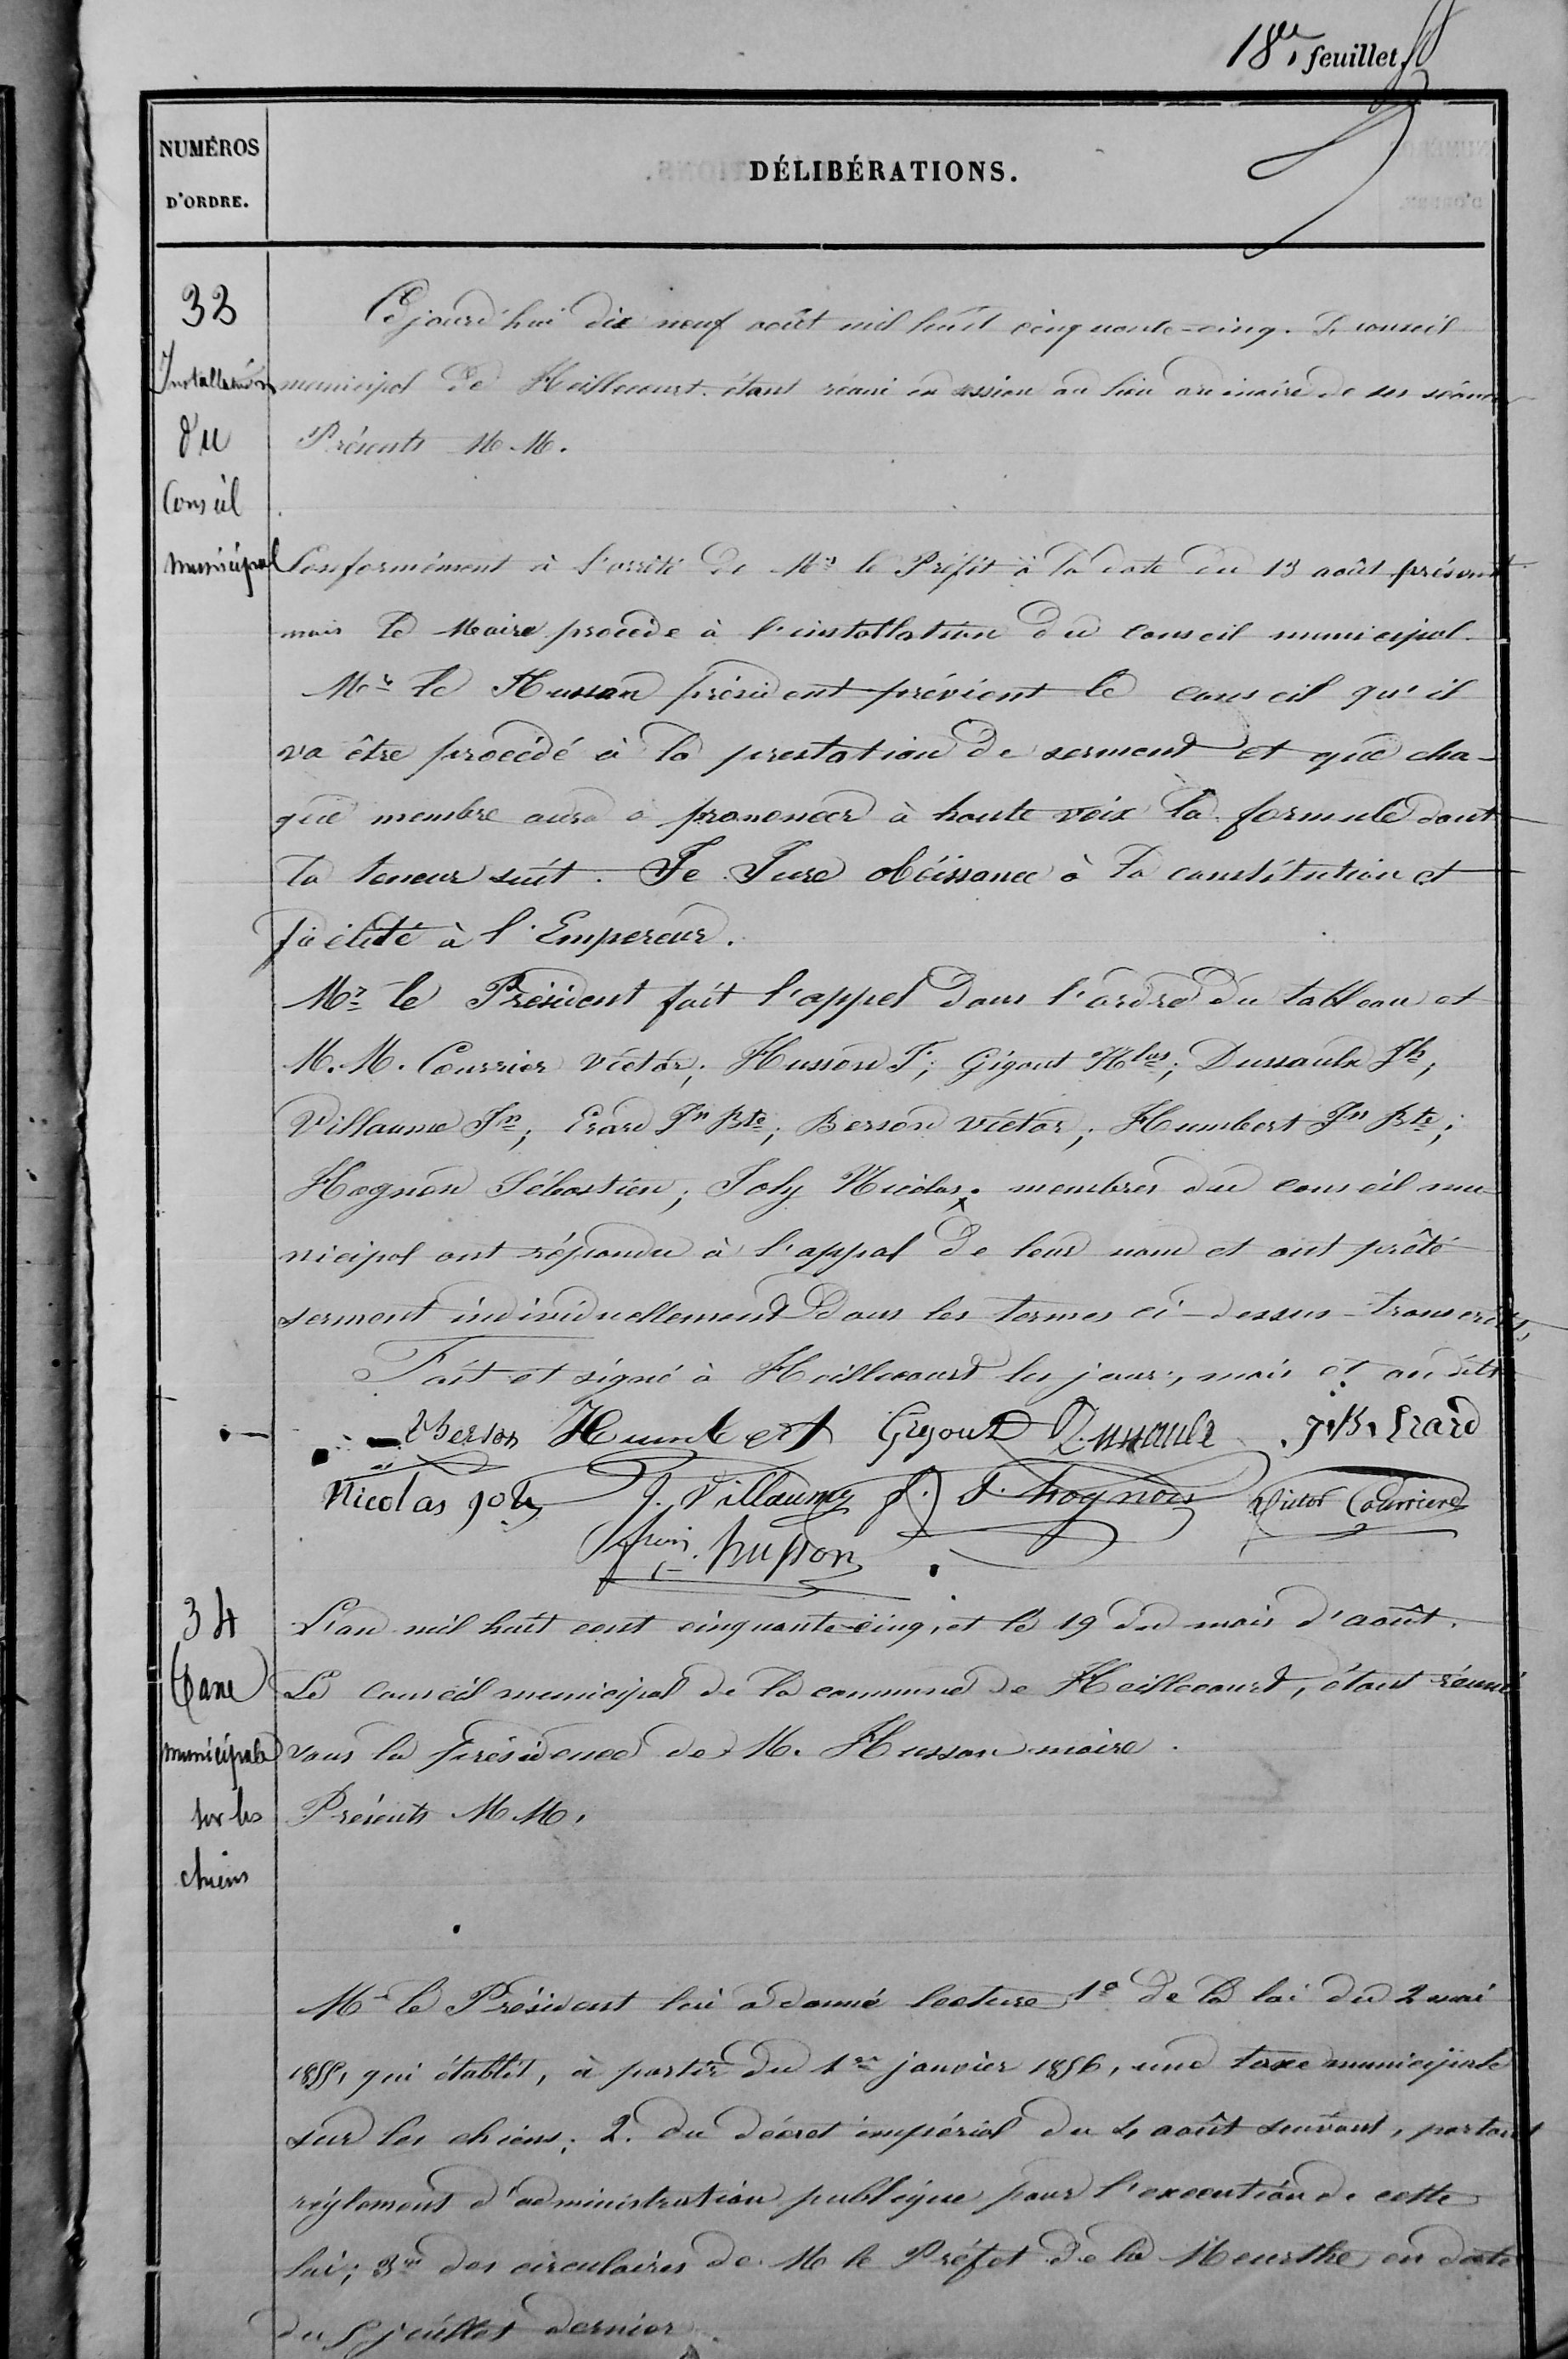 18e feuillet
NUMÉROS
D'ORDRE.
DÉLIBÉRATIONS.
33
Installation
du
Conseil
municipal
Cejourd'hui dix neuf août mil huit cinquante-cinq. Le conseil
municipal de Heillecourt étant réuni en session au lieu ordinaire de ses séances
Présents M.M.
Conformément à l'arrêté de Mr le Préfet à la date du 13 août présent
mois le Maire procède à l'installation du conseil municipal.
Mr le Husson président prévient le conseil qu'il
va être procédé à la prestation de serment et que cha-
que membre aura à prononcer à haute voix la formule dont
la teneur suit. Je Jure obéissance à la constitution et
fidélité à l'Empereur.
Mr le Président fait l'appel dans l'ordre du tableau et
M.M. Courrier Victor; Husson F; Gigout Nlas; Dussaulx Jh;
Villaume Jn; Erard Jn Bte; Berson Victor; Humbert Jn Bte;
Hognon Sébastien; Joly Nicolas; membres du conseil mu-
nicipal ont répondu à l'appel de leur nom et ont prêté
serment individuellement dans les termes ci-dessus transcrits
Fait et signé à Heillecourt les jour, mois et an dits
V Berson Humbert Gigout Dussaulx J.B. Erard
Nicolas Joly J. Villaume S. hognon Victor Courrier
husson
34
Taxe
municipale
sur les
chiens
L'an mil huit cent cinquante-cinq, et le 19 du mois d'août.
Le Conseil municipal de la commune de Heillecourt, étant réuni
sous la présidence de M. Husson maire.
Présents M M.
Mr le Président lui a donné lecture 1o de la loi du 2 mai
1855, qui établit, à partir du 1er janvier 1856, une taxe municipale
sur les chiens; 2. du décret impérial du 4 août suivant, portant
réglement d'administration publique pour l'exécution de cette
loi; 3o des circulaires de M le Préfet de la Meurthe en date
du 5 juillet dernier